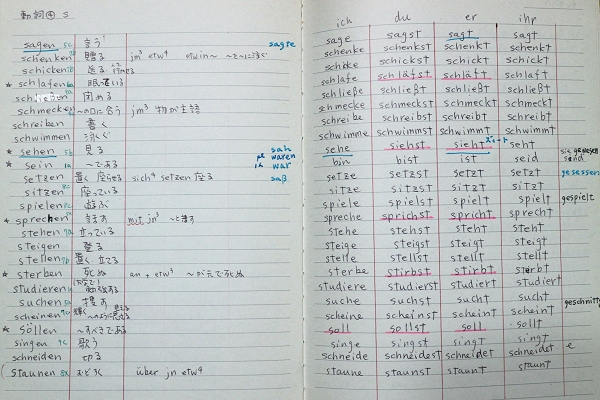 動詞④ S
sagen 言う sagte
schenken 贈る jm³ etw⁴
schicken 送る
* schlafen 眠っている
schließen 閉める
schmecken ~の口に合う jm³ 物が主語
schreiben 書く
schwimmen 泳ぐ
* sehen 見る sah
* sein ~である waren war
setzen 置く 座らせる sich⁴ setzen 座る
sitzen 座っている saß
spielen 遊ぶ
* sprechen 話す mit jm³
stehen 立っている
steigen 登る
stellen 置く 立てる
* sterben 死ぬ an + etw³ ~が元で死ぬ
studieren
suchen 捜す
scheinen 輝く
* sollen ~すべきである
singen 歌う
schneiden 切る
staunen おどろく über jn etw⁴
ich du er ihr
sage sagst sagt sagt
schenke schenkst schenkt schenkt
schicke schickst schickt schickt
schlafe schläfst schläft schlaft
schließe schließt schließt schließt
schmecke schmeckst schmeckt schmeckt
schreibe schreibst schreibt schreibt
schwimme schwimmst schwimmt schwimmt
sehe siehst sieht seht
bin bist ist seid sind
setze setzst setzt setzt gesessen
sitze sitzst sitzt sitzt
spiele spielst spielt spielt gespielt
spreche sprichst spricht sprecht
stehe stehst steht steht
steige steigst steigt steigt
stelle stellst stellt stellt
sterbe stirbst stirbt sterbt
studiere studierst studiert studiert
suche suchst sucht sucht
scheine scheinst scheint scheint
soll sollst soll sollt
singe singst singt singt
schneide schneidest schneidet schneidet e
staune staunst staunt staunt